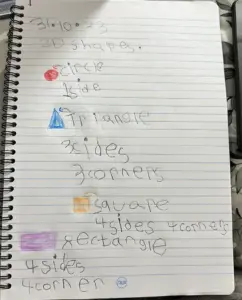 31.10.23
2D shapes.
circle
1side
Triangle
3sides
3corners
square
4sides 4corners
rectangle
4sides
4corner